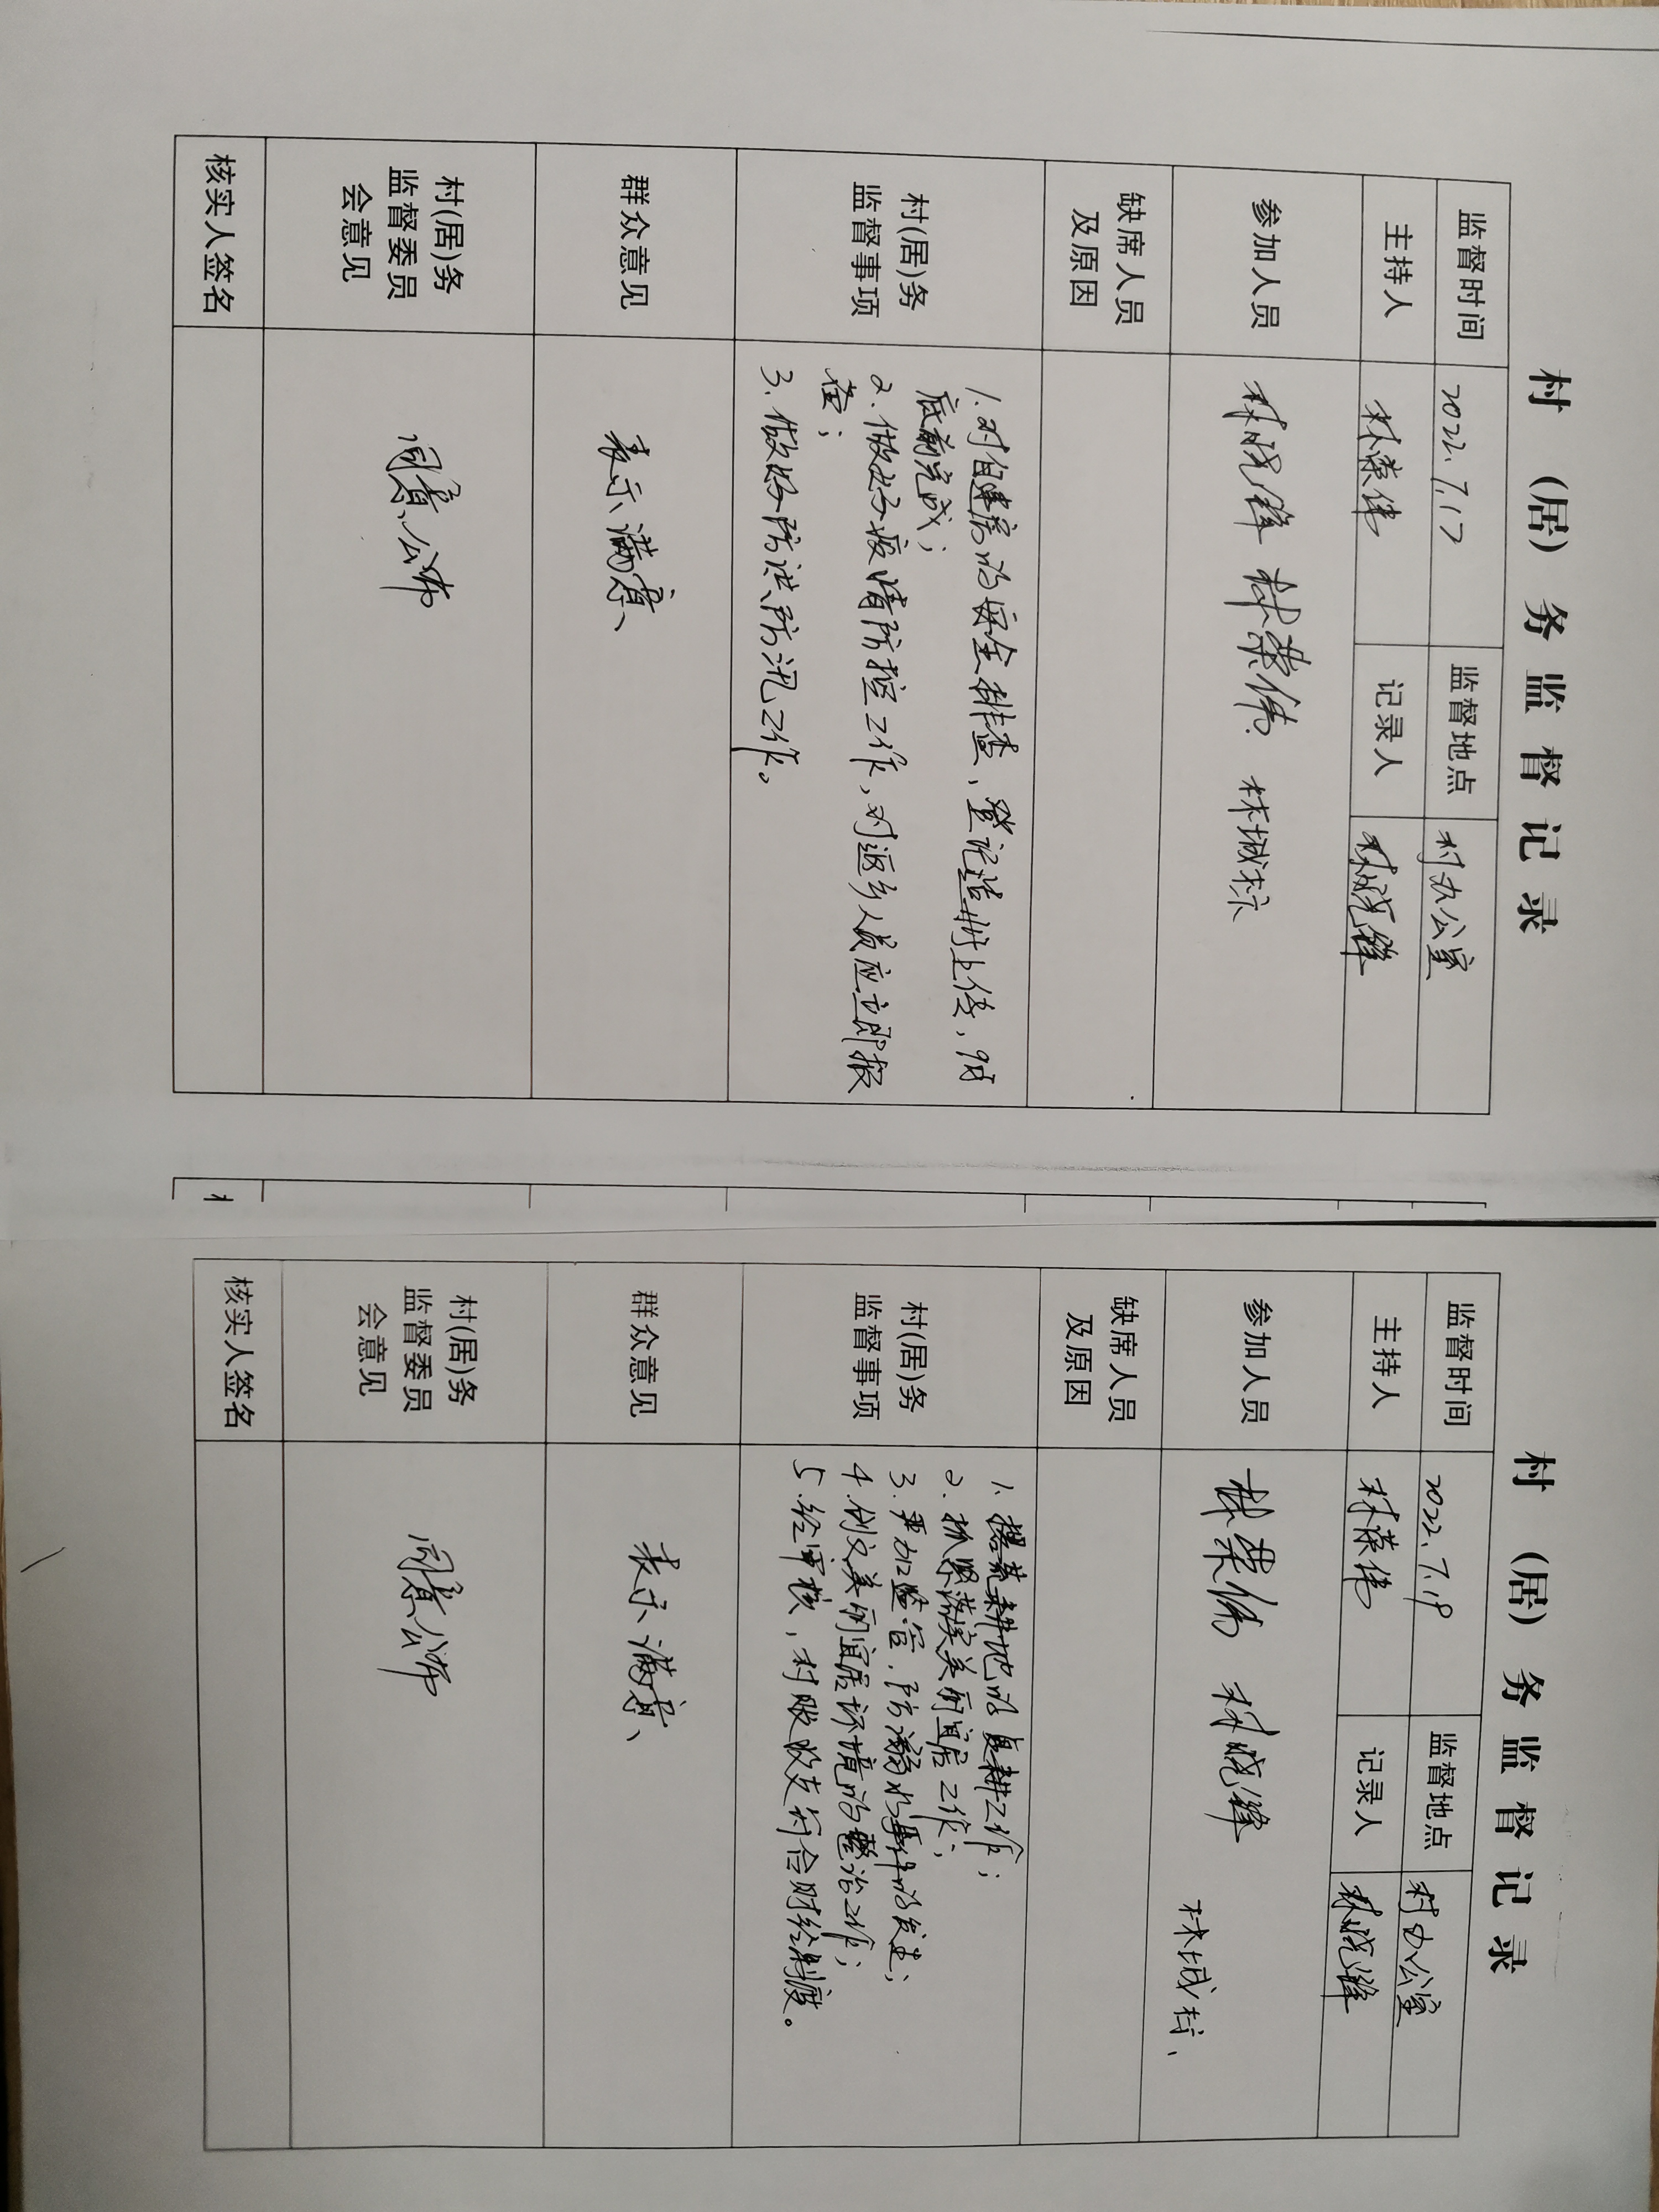 村（居）务监督记录
监督时间 2022.7.17 监督地点 村办公室
主持人 林荣伟 记录人 林晓锋
参加人员 林晓锋 林荣伟. 林城
缺席人员
及原因
村(居)务
监督事项
1.对自建房的安全排查，登记造册上传，9月
底前完成；
2.做好疫情防控工作，对返乡人员应立即报
查；
3.做好防洪、防汛工作。
群众意见 表示满意、
村(居)务
监督委员
会意见
同意公布
核实人签名
村（居）务监督记录
监督时间 2022.7.19 监督地点 村办公室
主持人 林荣伟 记录人 林晓锋
参加人员 林荣伟 林晓锋 林城
缺席人员
及原因
村(居)务
监督事项
1、撂荒耕地的复耕工作；
2.抓紧落实美丽宜居工作；
3.严加监管，防溺水事件的发生；
4.创文美丽宜居环境的整治工作；
5.经审核，村账收支符合财经制度。
群众意见 表示满意、
村(居)务
监督委员
会意见
同意公布
核实人签名